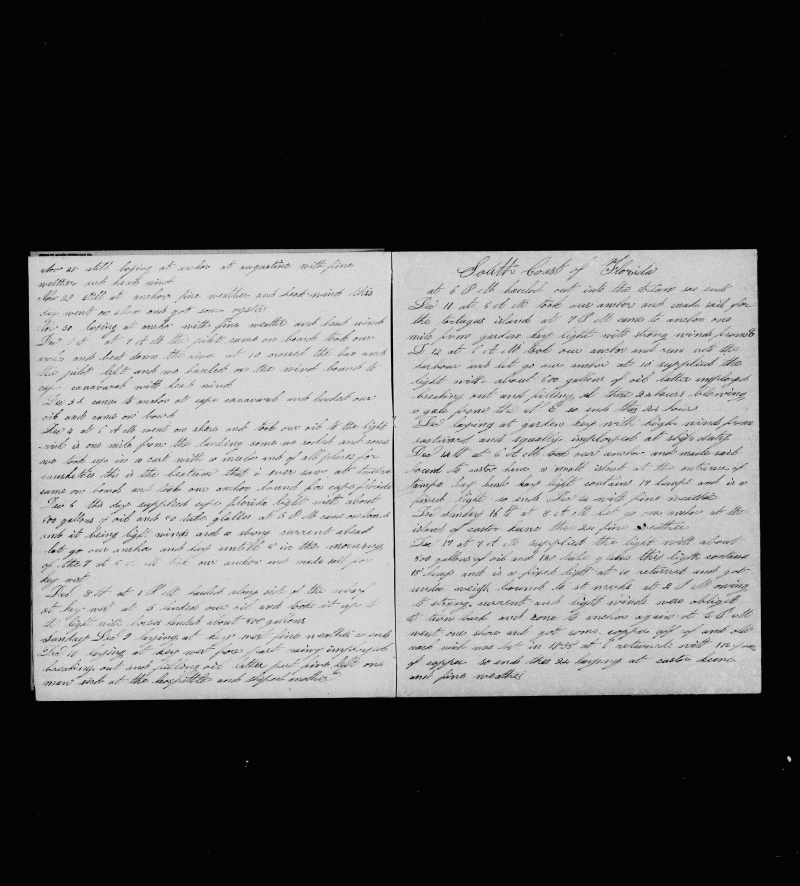 Nov 28 still laying at anchor at augustine with fine
weather and head wind
Nov 29 still at anchor fine weather and head wind this
day went on shore and got some oysters
Nov 30 laying at anchor with fine weather and head wind
Dec 1st at 7 A M the pilot came on board took our
anchor and beat down the river at 10 crossed the bar and
the pilot left and we hauled on the wind bound to
cape canaveral with head wind
Dec 3d came to anchor at cape canaveral and landed our
oil and came on board
Dec 4 at 6 A M went on shore and took our oil to the light
wich is one mile from the landing some we rooled and some
we took up in a cart with a mule and of all places for
musketoes this is the beatum that i ever saw at twelve
came on board and took our anchor bound for cape florida
Dec 6 this day supplied cape florida light with about
500 gallons of oil and 50 tube glasses at 5 P M came on board
and it being light winds and a strong current ahead
let go our anchor and lay untill 5 in the morning
of the 7 at 5 A M took our anchor and made sail for
key west
Dec 8th at 1 P M hauled along side of the wharf
at key west at 5 landed our oil and took it up to
the light with horses landed about 800 gallons
Sunday Dec 9 laying at key west fine weather so ends
Dec 10 laying at key west fore part rainy imployed
breaking out and filling oil latter part fine left one
man sick at the hospittle and shiped another
South Coast of Florida
at 5 P M hauled out into the stream so ends
Dec 11 at 6 A M took our anchor and made sail for
the tortugas islands at 7 P M came to anchor one
mile from garden key light with strong winds from
D 12 at 6 A M took our anchor and run into the
harbour and let go our anchor at 10 supplied the
light with about 600 gallons of oil latter imployed
breaking out and filling oil these 24 hours blowing
a gale from the N E so ends this 24 hours
Dec laying at garden key with high wind from
eastward and equally imployed at ships duty
Dec 14th at 6 A M took our anchor and made sail
bound to egmont a small island at the entrince of
tampa bay light contains 17 lamps and is a
fixed light so ends this 24 with fine weather
Dec Sunday 16th at 8 A M let go our anchor at the
island of the 24 fine weather
Dec 17 at 7 A M supplied the light with about
500 gallons of oil and 150 tube glasses this light contains
15 lamps and is a fixed light at 10 returned and got
under weigh bound to st marks at 2 P M owing
to strong current and light winds were obliged
to turn back and come to anchor again at 3 P M
went on shore and got some copper off of and old
wich was lost in 1835 at 6 returned with
of copper so ends this 24 laying at
and fine weather